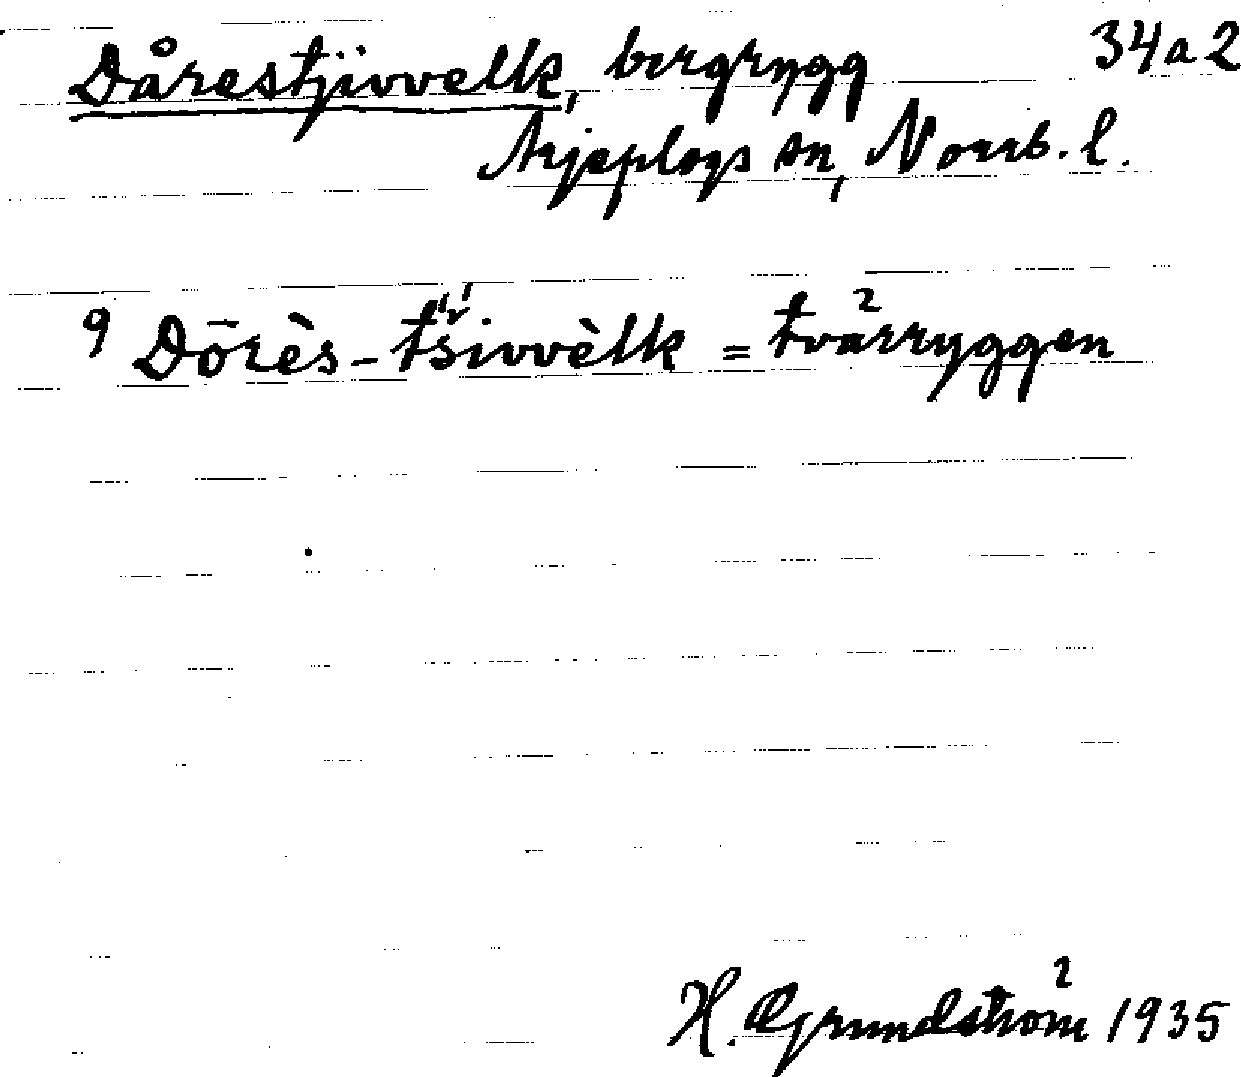 Dårestjivvelk, bergrygg 34a2
Arjeplogs sn, Norrb. l.
9 Dō̬rès-tš̍ivvèlk = tvärryggen
H. Grundström 1935